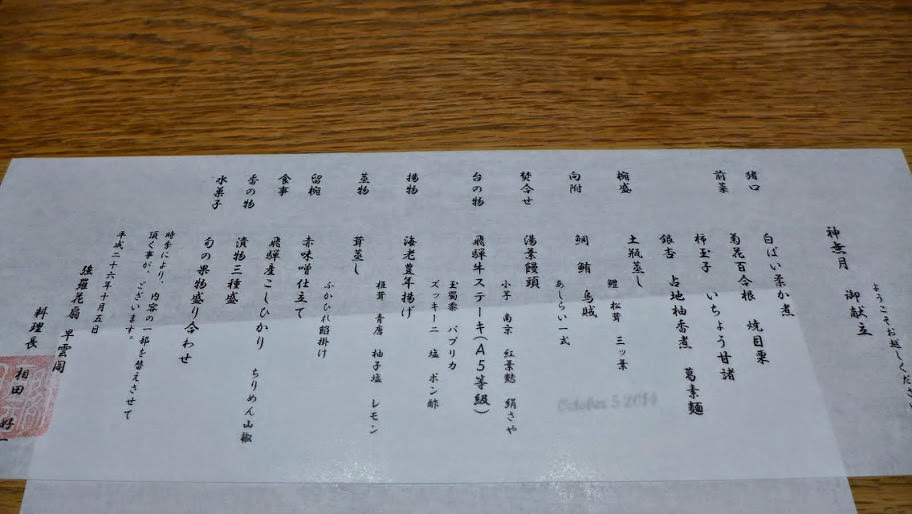 ようこそお越しくださ
神無月　御献立
猪口　白ばい葉か煮
前菜　菊花百合根　焼目栗
柿玉子　いちょう甘諸
銀杏　占地柚香煮　葛素麺
椀盛　土瓶蒸し
鱧　松茸　三ッ葉
向附　鯛　鮪　烏賊
あしらい一式
焚合せ　湯葉饅頭
小芋　南京　紅葉麩　絹さや
台の物　飛騨牛ステーキ（A5等級）
玉蜀黍　パプリカ
ズッキーニ　塩　ポン酢
揚物　海老豊年揚げ
椎茸　青唐　柚子塩　レモン
蒸物　茸蒸し
ふかひれ餡掛け
留椀　赤味噌仕立て
食事　飛騨産こしひかり　ちりめん山椒
香の物　漬物三種盛
水菓子　旬の果物盛り合わせ
時季により、内容の一部を替えさせて
頂く事が、ございます。
平成二十六年十月五日
強羅花扇　早雲閣
料理長　相田　好
October 5 2014